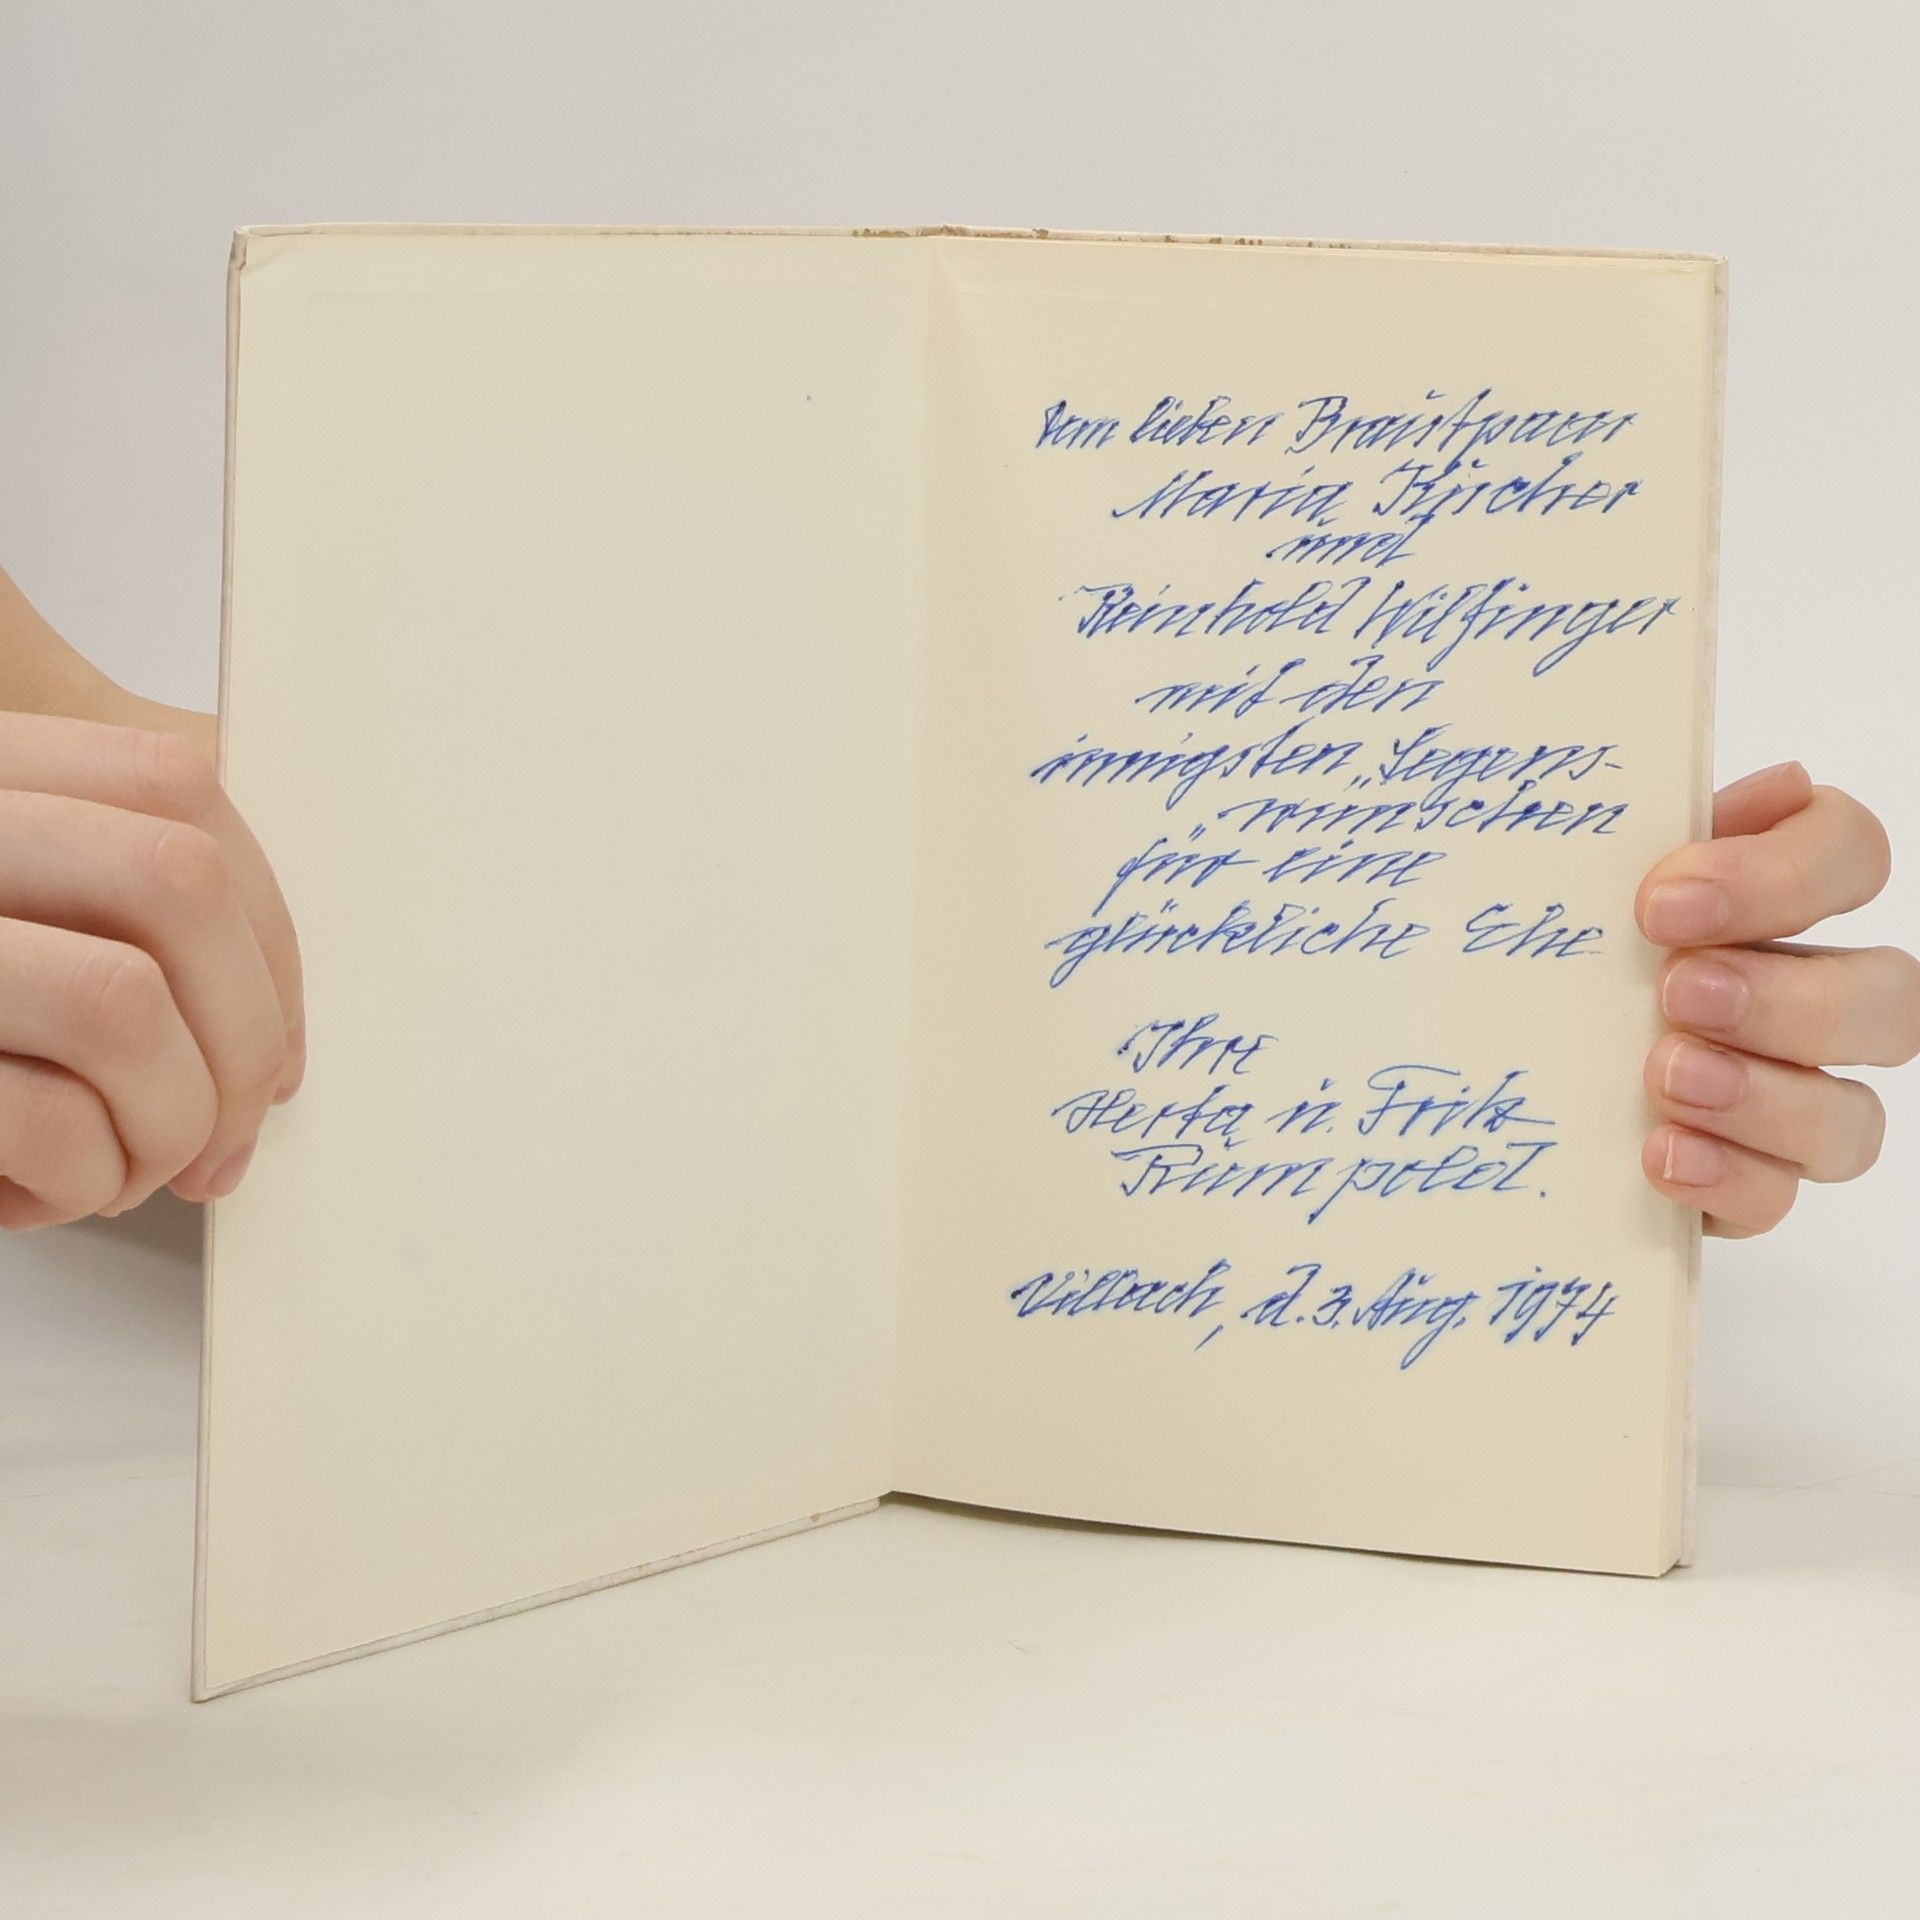 Dem lieben Brautpaar
Maria Kucher
und
Reinhold Wilfinger
mit den
innigsten „Segens-
„wünschen
für eine
glückliche Ehe
Ihre
Herta u. Fritz
Rumpold.
Villach, d. 3. Aug. 1974